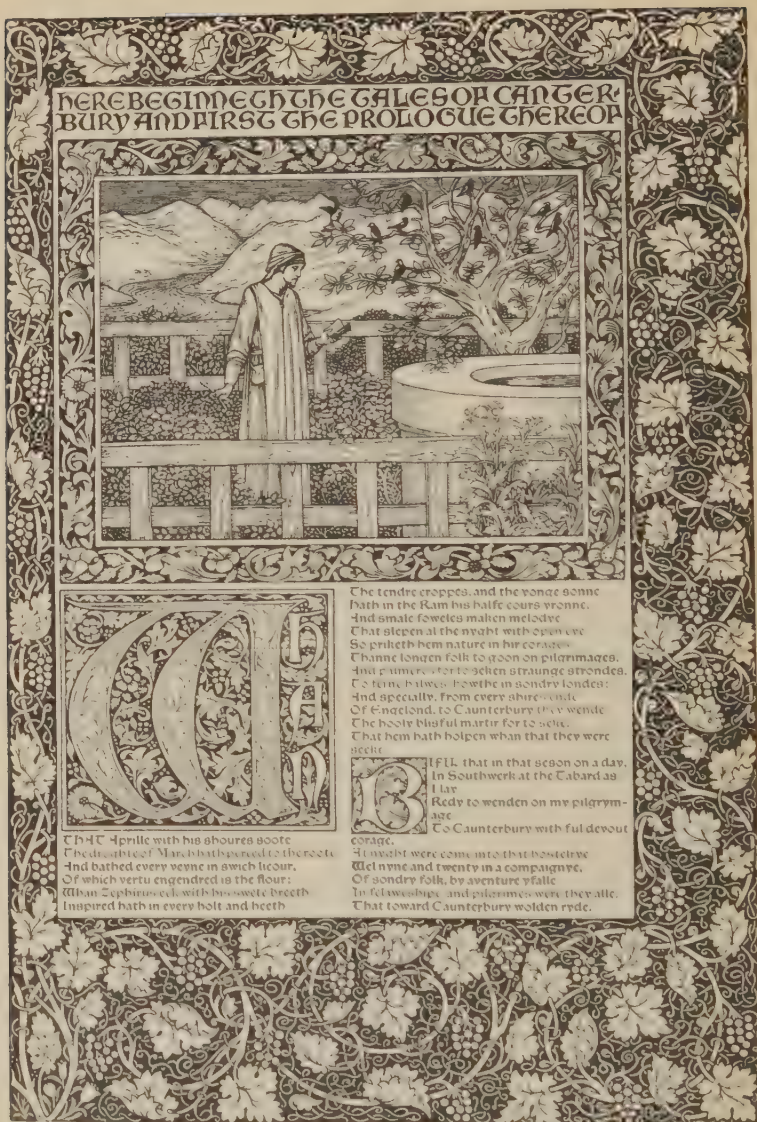 HERE BEGINNETH THE TALES OF CANTER-
BURY AND FIRST THE PROLOGUE THEREOF
WHAN
THAT Aprille with his shoures soote
The droghte of March hath perced to the roote
And bathed every veyne in swich licour,
Of which vertu engendred is the flour;
Whan Zephirus eek with his swete breeth
Inspired hath in every holt and heeth
The tendre croppes, and the yonge sonne
Hath in the Ram his halfe cours yronne,
And smale foweles maken melodye
That slepen al the nyght with open eye
So priketh hem nature in hir corages
Thanne longen folk to goon on pilgrimages,
And palmeres for to seken straunge strondes,
To ferne halwes, kowthe in sondry londes;
And specially, from every shires ende
Of Engelond, to Caunterbury they wende
The hooly blisful martir for to seke,
That hem hath holpen whan that they were
seeke.
BIFIL that in that seson on a day,
In Southwerk at the Tabard as
I lay
Redy to wenden on my pilgrym-
age
To Caunterbury with ful devout
corage,
At nyght were come into that hostelrye
Wel nyne and twenty in a compaignye,
Of sondry folk, by aventure yfalle
In felaweshipe, and pilgrimes were they alle,
That toward Caunterbury wolden ryde.